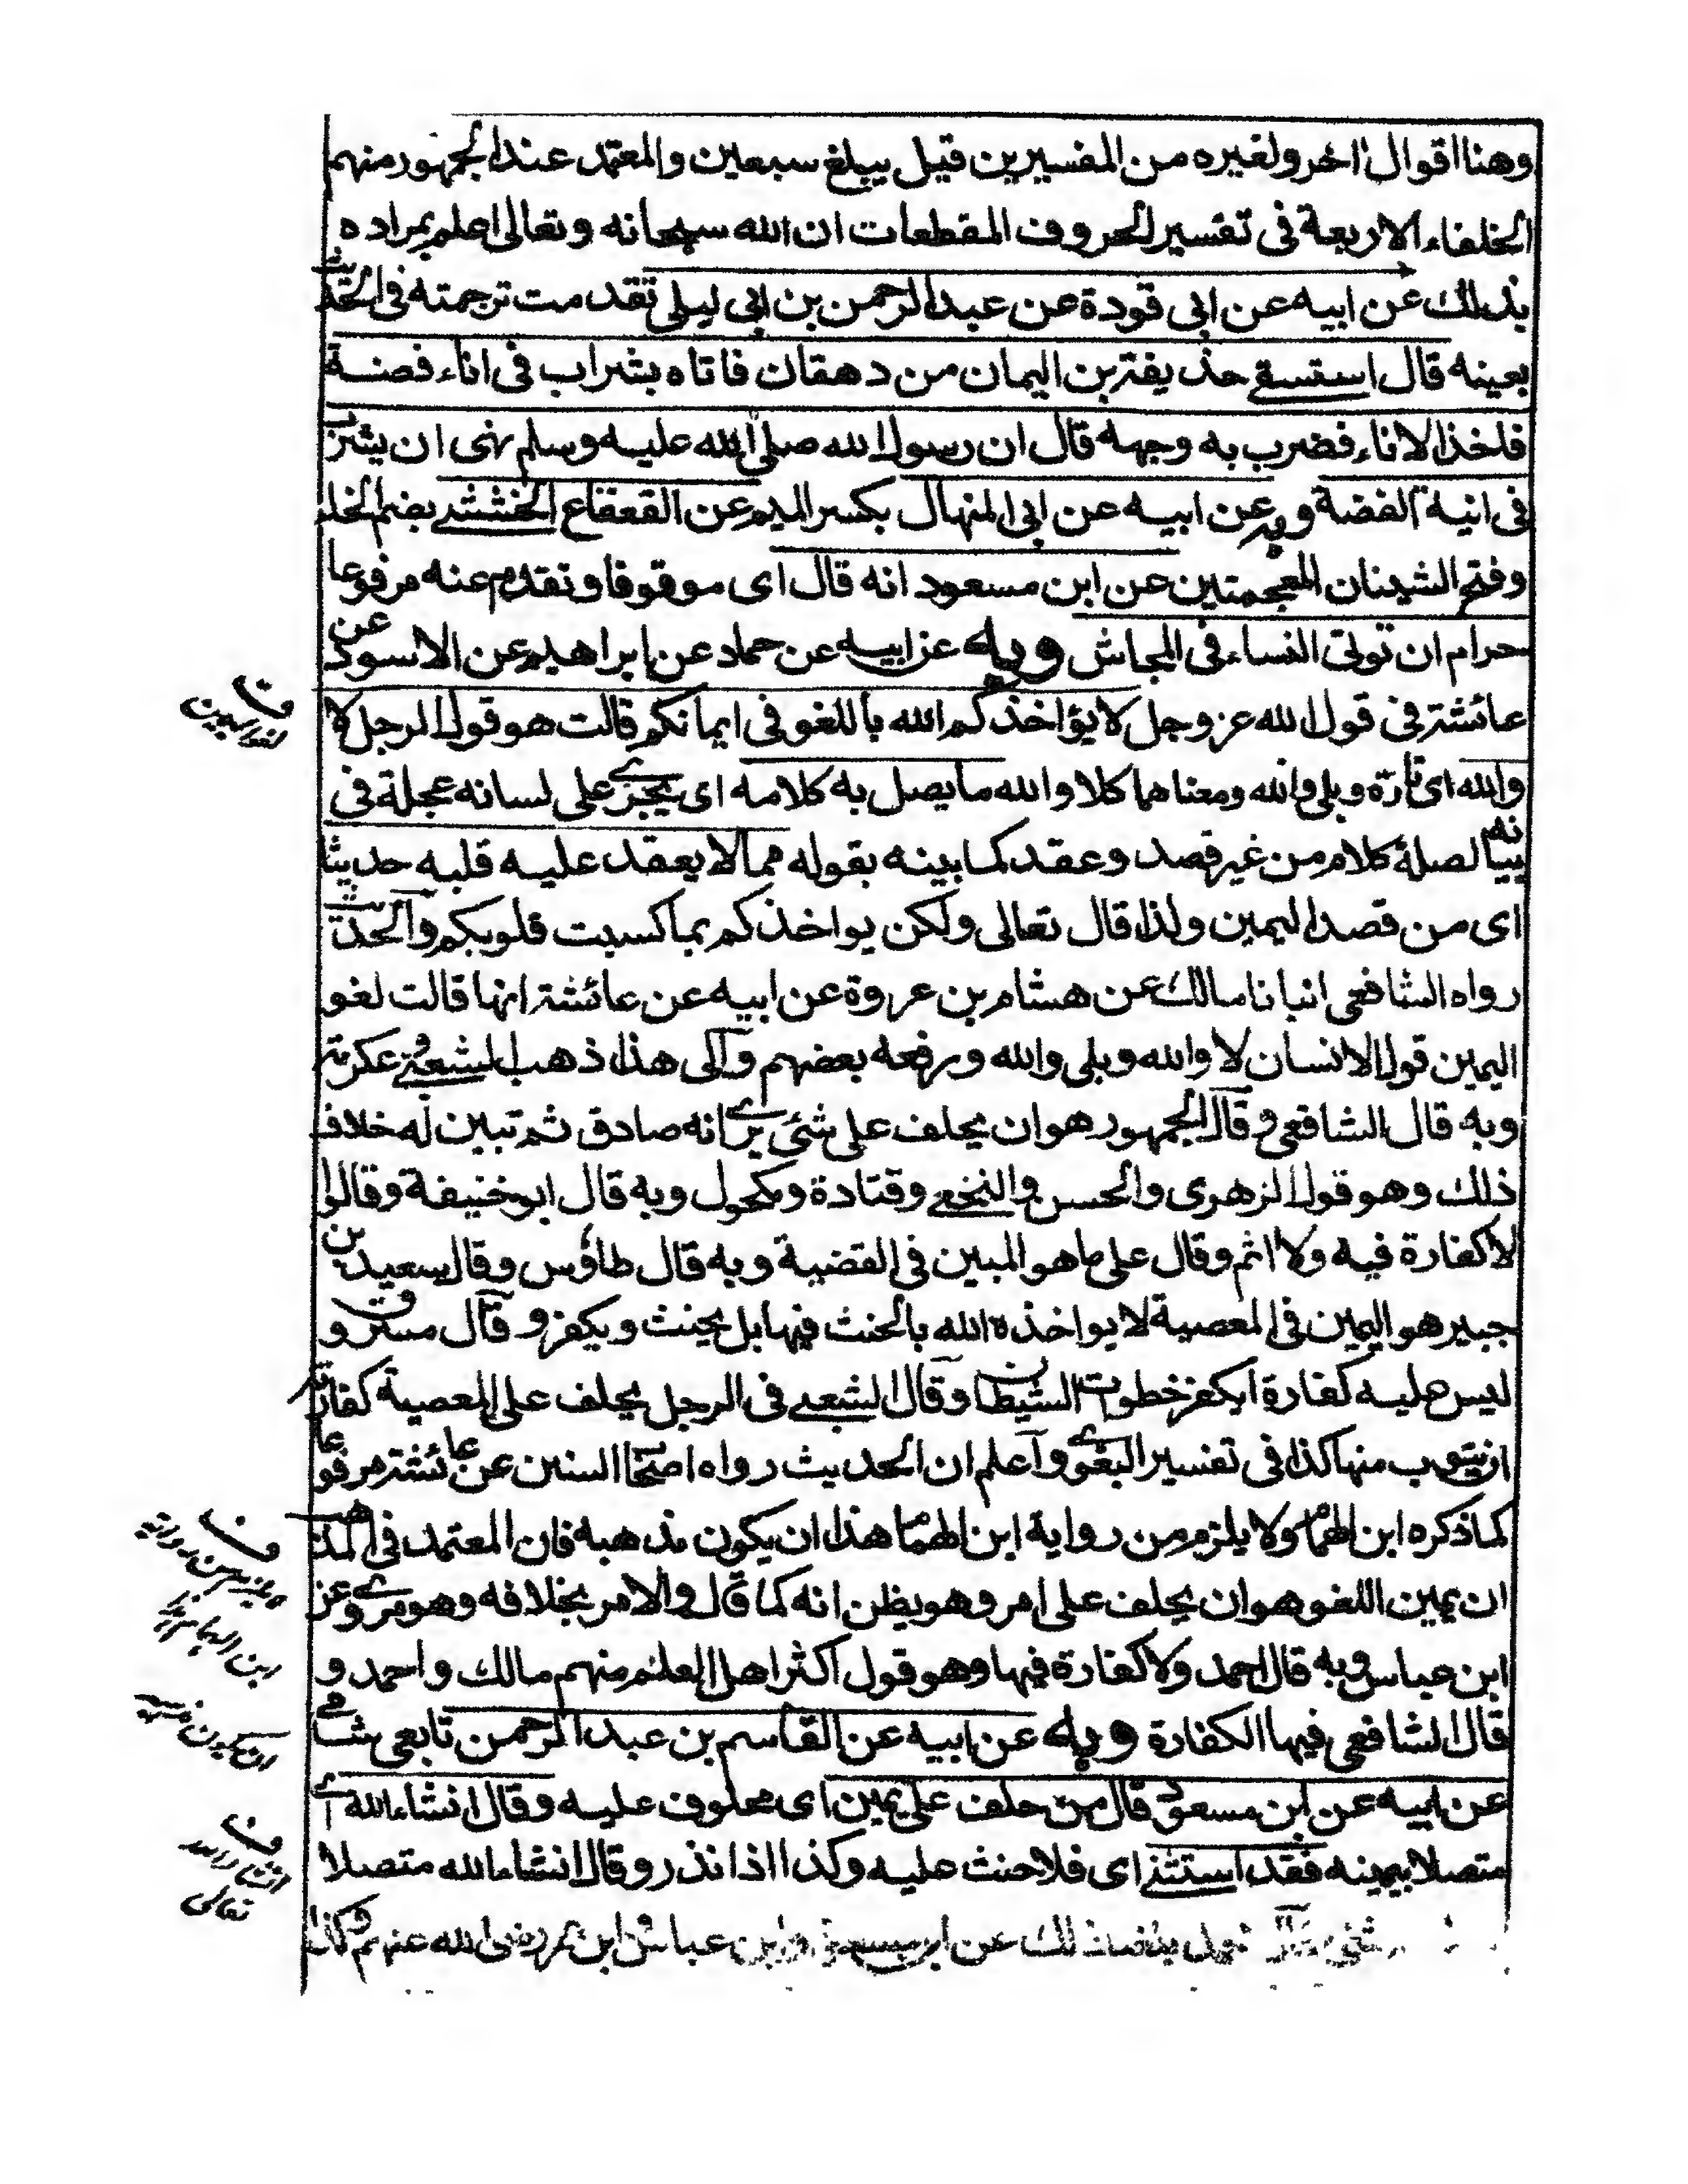 وهنا اقوال اخر ولغيره من المفسيرين قيل يبلغ سبعين والمعتمد عند الجمهور منهم
الخلفاء الاربعة فى تفسير الحروف المقطعات ان الله سبحانه وتعالى اعلم بمراده
بذلك عن ابيه عن ابى قودة عن عبد الرحمن بن ابى ليلى تقدمت ترجمته فى الحديث
بعينه قال استسقے حذيفة بن اليمان من دهقان فاتاه بشراب فى اناء فضة
فاخذ الاناء فضرب به وجهه قال ان رسول الله صلى الله عليه وسلم نهى ان يشرب
فى انية الفضة وبه عن ابيه عن ابى المنهال بكسر الميم عن القعقاع الخشنے بضم الخاء
وفتح الشينان المعجمتين عن ابن مسعود انه قال اى موقوفا وتقدم عنه مرفوعا
حرام ان توتى النساء فى المجاش وبه عن ابيه عن حماد عن ابراهيم عن الاسود عن
عائشة فى قول الله عز وجل لا يؤاخذكم الله باللغو فى ايمانكم قالت هو قول الرجل لا
والله اى تارة وبلى والله ومعناهما كلا والله ما يصل به كلامه اى يجرے على لسانه عجلة فى
بيانه لصلة كلام من غير قصد وعقد كما بينه بقوله مما لا يعقد عليه قلبه حديثا
اى من قصد اليمين ولذا قال تعالى ولكن يواخذكم بما كسبت قلوبكم والحديث
رواه الشافعى انبانا مالك عن هشام بن عروة عن ابيه عن عائشة انها قالت لغو
اليمين قول الانسان لا والله وبلى والله ورفعه بعضهم والى هذا ذهب الشعبے وعكرمة
وبه قال الشافعى وقال الجمهور هو ان يحلف على شئ يرے انه صادق ثم تبين له خلاف
ذلك وهو قول الزهرى والحسن والنخعے وقتادة ومكحول وبه قال ابو حنيفة وقالوا
لا كفارة فيه ولا اثم وقال على ما هو المبين فى القضية وبه قال طاؤس وقال سعيد بن
جبير هو اليمين فى المعصية لا يواخذه الله بالحنث فيها بل يحنث ويكفر وقال مسروق
ليس عليه كفارة ايكفر خطوات الشيطان وقال الشعبے فى الرجل يحلف على المعصية كفارته
ان يتوب منها كذا فى تفسير البغوے واعلم ان الحديث رواه اصحاب السنن عن عائشة مرفوعا
كما ذكره ابن الهمام ولا يلزم من رواية ابن الهمام هذا ان يكون مذهبه فان المعتمد فى المذهب
ان يمين اللغو هو ان يحلف على امر وهو يظن انه كما قال والامر بخلافه وهو مروے عن
ابن عباس وبه قال احمد ولا كفارة فيها وهو قول اكثر اهل العلم منهم مالك واحمد و
قال الشافعى فيها الكفارة وبه عن ابيه عن القاسم بن عبد الرحمن تابعى شامى
عن ابيه عن ابن مسعود قال من حلف على يمين اى محلوف عليه وقال انشاء الله اى
متصلا بيمينه فقد استثنے اى فلا حنث عليه وكذا اذا نذر وقال انشاء الله متصلا
عباس وابن عمر رضى الله عنهم وكذا
ف
لغو يمين
ف
ابن الهمام
ف
انشاء الله
تعالى